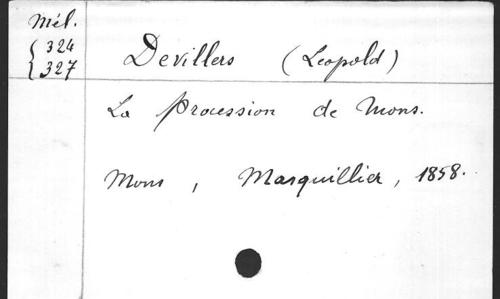 Mél.
324
327
Devillers (Leopold)
La Procession de Mons.
Mons, Masquillier, 1858.